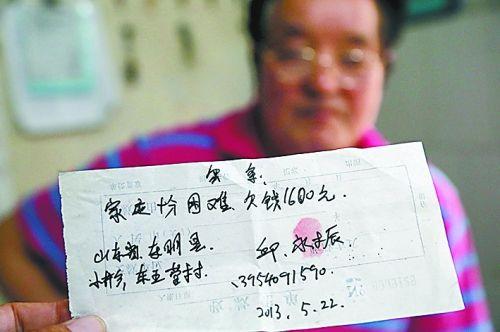 欠条.
家庭十分困难 欠钱1600元.
山东省 东明县. 邱
小井乡, 东 营村. 13954091590.
2013.5.22.